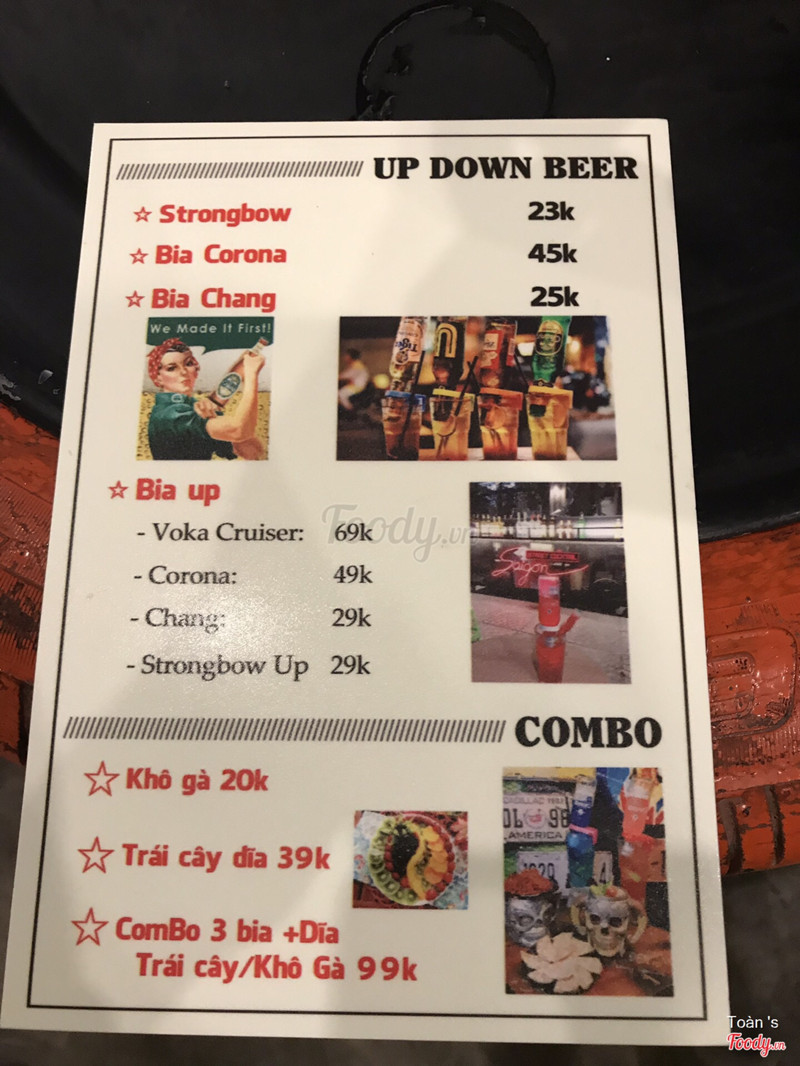 UP DOWN BEER
☆ Strongbow 23k
☆ Bia Corona 45k
☆ Bia Chang 25k
We Made It First!
☆ Bia up
- Voka Cruiser: 69k
Foody.vn
- Corona: 49k
Saigon
- Chang: 29k
- Strongbow Up 29k
COMBO
☆ Khô gà 20k
CADILLAC
AMERICA
☆ Trái cây dĩa 39k
☆ ComBo 3 bia +Dĩa
Trái cây/Khô Gà 99k
Toàn 's
Foody.vn